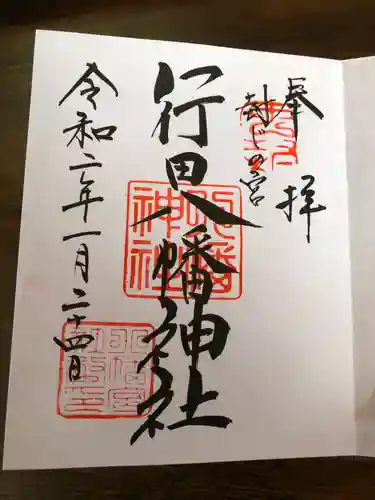 奉拝
封じの宮
行田八幡神社
令和六年一月二十四日
八幡神社